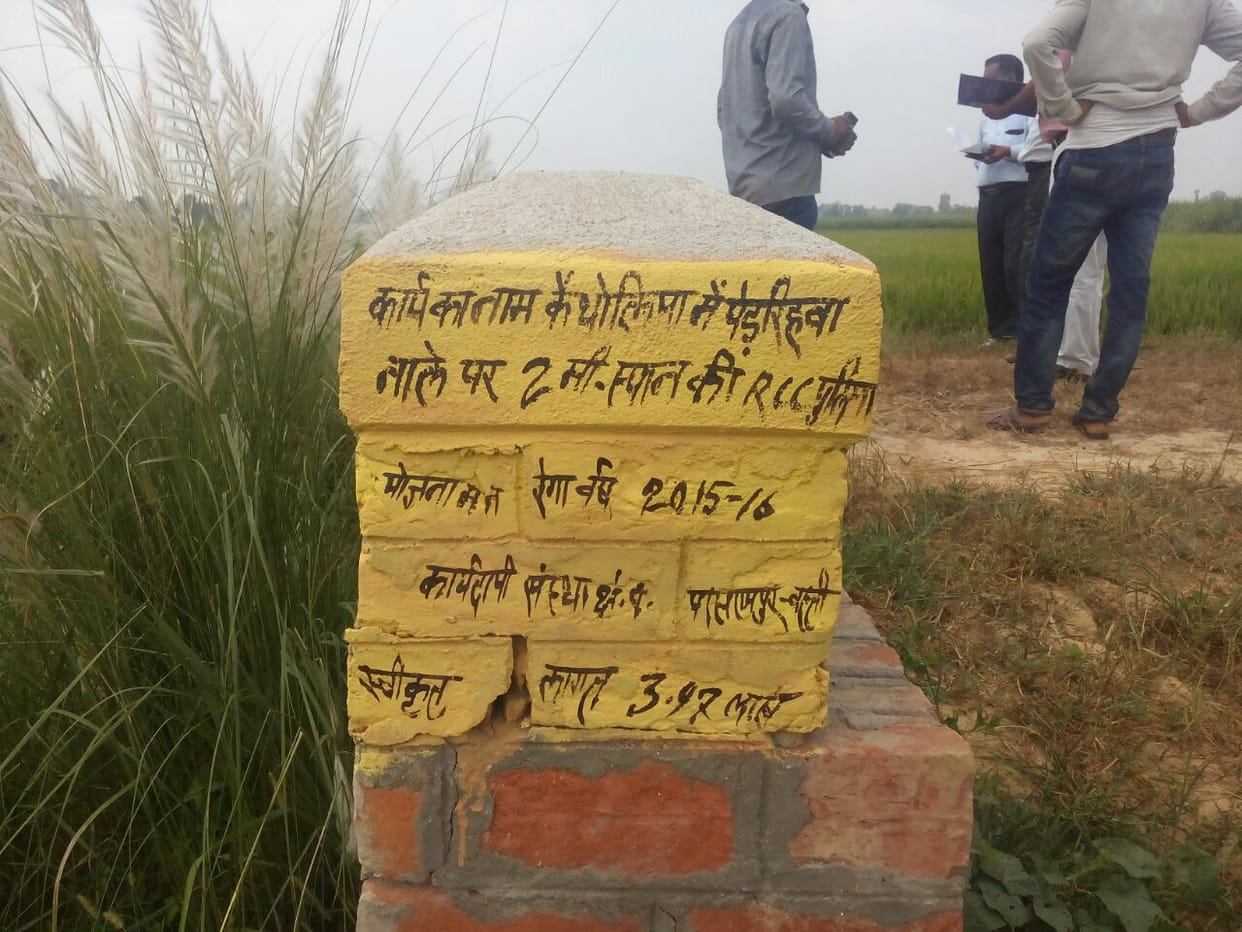 कार्य का नाम कैथोलिया में पेड़रिहवा
नाले पर 2 मी. स्पान की RCC पुलिया
योजना मन रेगा वर्ष 2015-16
कार्यदायी संस्था क्षे.पं.
स्वीकृत लागत लाख